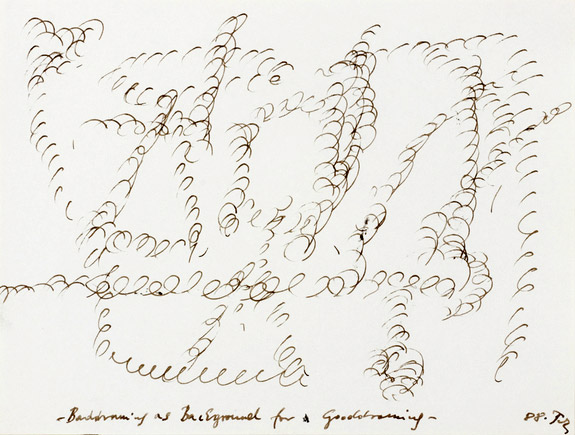 - Baddrawing as Background for a Gooddrawing - 88.